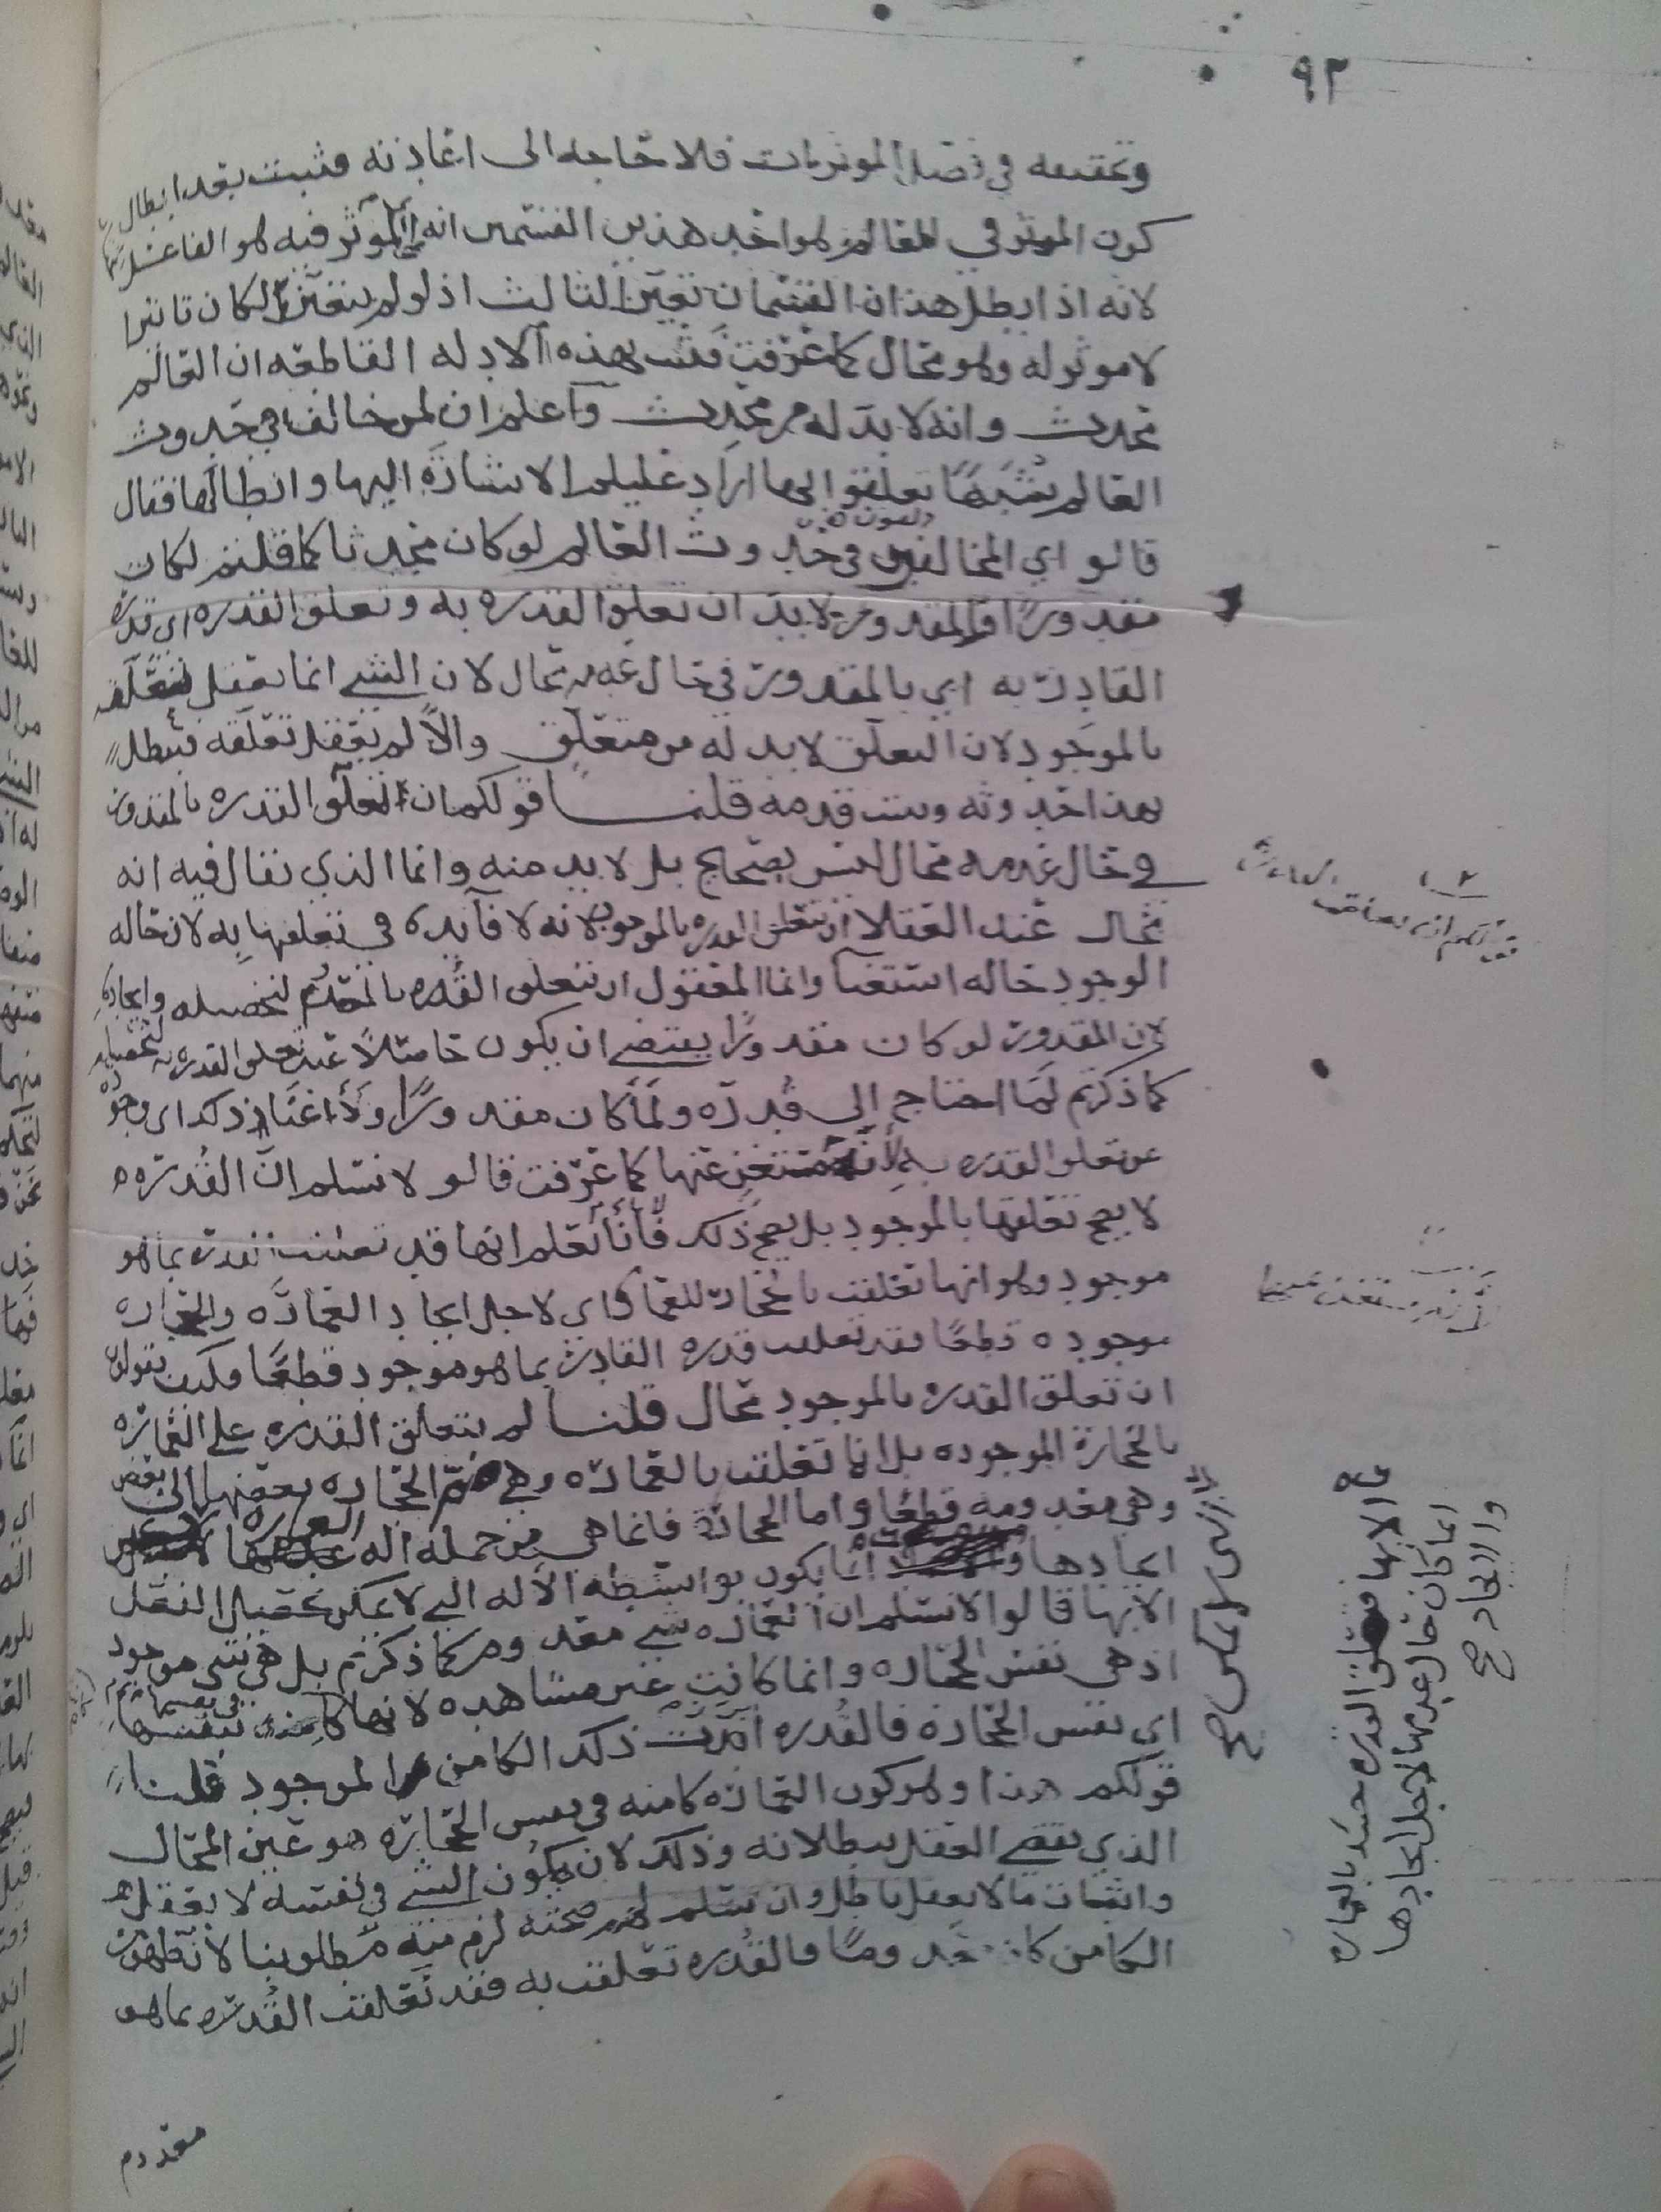 ٩٢
وتحقيقه في فصل الموثرات فلا حاجه الى اعادته فثبت بعد ابطال
كون الموثر في العالم هو احد هذين القسمين انه الموثر فيه هو الفاعل
لانه اذا بطل هذان القسمان تعين الثالث اذ لو لم يتعين لكان تاثيرا
لا موثر له وهو محال كما عرفت فثبت بهذه الادله القاطعه ان العالم
محدث وانه لا بد له من محدث واعلم ان لمن خالف في حدوث
العالم شبها تعلقوا بها اراد عليلم الاشاره اليها وابطالها فقال
قالوا اي المخالفون في حدوث العالم لو كان محدثا كما قلتم لكان
مقدورا والمقدور لا بد ان تعلق القدره به وتعلق القدره اي قدرة
القادر به اي بالمقدور في حال عدمه محال لان الشي انما يعقل تعلقه
بالموجود لان التعلق لا بد له من متعلق والا لم يعقل تعلقه فبطل
بهذا حدوثه وثبت قدمه قلنا قولكم ان تعلق القدره بالمقدور
في حال عدمه محال ليس بصحيح بل لا بد منه وانما الذي يقال فيه انه
محال عند العقلا ان تتعلق القدره بالموجود لانه لا فآيده في تعلقها به لان حاله
الوجود حاله استغنا وانما المعقول ان تتعلق القدره بالمعدوم لتحصيله وايجاده
لان المقدور لو كان مقدورا يقتضي ان يكون حاصلا عند تعلق القدره به لتحصيله
كما ذكرتم لما احتاج الى قدره ولما كان مقدورا ولا اغنا ذلك اي وجوده
عن تعلق القدره به لانه مستغن عنها كما عرفت قالو لا نسلم ان القدره
لا يصح تعلقها بالموجود بل يصح ذلك فانا نعلم انها قد تعلقت القدره بما هو
موجود وهو انها تعلقت بالحجاره للعماره اي لاجل ايجاد العماره والحجاره
موجوده قطعا فقد تعلقت قدره القادر بما هو موجود قطعا فكيف تقولون
ان تعلق القدره بالموجود محال قلنا لم يتعلق القدره على العماره
بالحجارة الموجوده بل انما تعلقت بالعماره وهي ضم الحجاره بعضها الى بعض
وهي معدومه قطعا واما الحجارة فانما هي من جمله اله العماره
ايجادها انما يكون بواسطه الاله التي لا يمكن تحصيل الفعل
الا بها قالوا لا نسلم ان العماره شي معدوم كما ذكرتم بل هي شي موجود
اذ هي نفس الحجاره وانما كانت غير مشاهده لانها كامنه في نفسها
اي نفس الحجاره فالقدره ابرزت ذلك الكامن الموجود قلنا
قولكم هذا وهو كون العماره كامنه في نفس الحجاره هو عين المحال
الذي يقضي العقل ببطلانه وذلك لان كون الشي في نفسه لا يعقل
واثبات ما لا يعقل باطل وان سلم لهم صحته لزم منه مطلوبنا لان ظهور
الكامن كان معدوما فالقدره تعلقت به فقد تعلقت القدره بما هو
معدوم
قولكم ان تعلق القدره
لانه مستغن عنها
الا بها فتعلق القدره حينئذ بالعماره
انما كان حال عدمها لاجل ايجادها
والايجاد صح